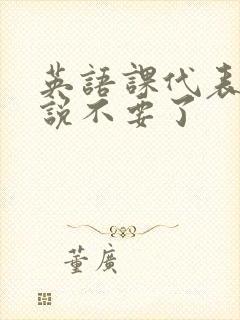 英語課代表
說不要了
董廣